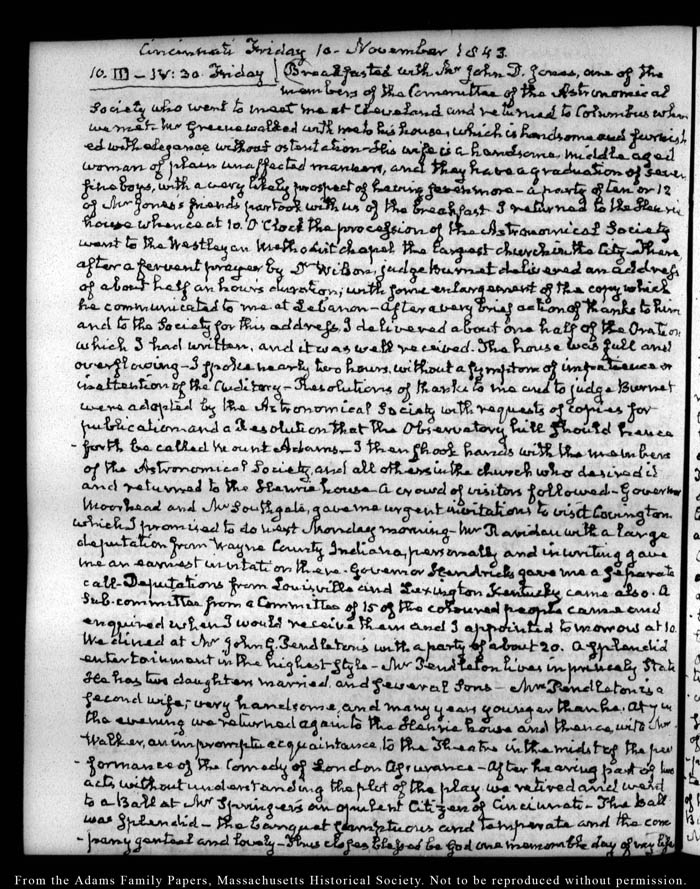 Cincinnati Friday 10. November 1843.
10. III – IV: 30. Friday Breakfasted with Mr John D. Jones, one of the
members of the Committee of the Astronomical
Society who went to meet me at Cleveland and returned to Columbus when
we met. Mr Greene walked with me to his house, which is handsome and furnish
ed with elegance without ostentation – His wife is a handsome middle aged
woman of plain unaffected manners, and they have a graduation of seven
fine boys, with a very likely prospect of having seven more – a party of ten or 12
of Mr Jones's friends partook with us of the breakfast. I returned to the Henrie
house whence at 10. O'Clock the procession of the Astronomical Society
went to the Westleyan Methodist chapel the largest church in the City – There
after a fervent prayer by Dr Wilson, judge Burnet delivered an address
of about half an hours duration; with some enlargement of the copy which
he communicated to me at Lebanon – After a very brief action of thanks to him
and to the Society for this address, I delivered about one half of the Oration
which I had written, and it was well received. The house was full and
overflowing – I spoke nearly two hours, without a symptom of impatience or
inattention of the Auditory – Resolutions of thanks to me and to judge Burnet
were adopted by the Astronomical Society with requests of copies for
publication and a Resolution that the Observatory hill should hence
-forth be called Mount Adams – I then shook hands with the members
of the Astronomical Society, and all others in the church who desired it
and returned to the Henrie house – A crowd of visitors followed – Governor
Moorhead and Mr Southgate, gave me urgent invitations to visit Covington
which I promised to do next Monday morning – Mr Raridan with a large
deputation from Wayne County Indiana, personally and in writing gave
me an earnest invitation there. Governor Hendricks gave me a separate
call – Deputations from Louisville and Lexington Kentucky came also. A
Sub-committee from a Committee of 15 of the coloured people came and
enquired when I would receive them and I appointed to morrow at 10.
We dined at Mr John G. Pendleton's with a party of about 20. A splendid
entertainment in the highest style – Mr Pendleton lives in princely State
He has two daughters married, and several Sons – Mrs Pendleton is a
second wife; very handsome, and many years younger than he. At 7 in
the evening we returned again to the Henrie house and thence, with Mr
Walker, an impromptu acquaintance, to the Theatre in the midst of the per
-formance of the Comedy of London Assurance – After hearing part of two
acts without understanding the plot of the play we retired and went
to a Ball at Mr Springer's an opulent Citizen of Cincinnati – The ball
was splendid – the banquet sumptuous and temperate and the com
-pany genteel and lovely – Thus closes, blessed be God one memorable day of my life
From the Adams Family Papers, Massachusetts Historical Society. Not to be reproduced without permission.